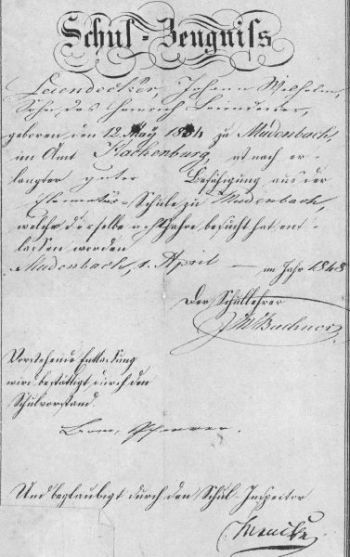 Schul-Zeugniß
Leiendecker, Johann Wilhelm,
Sohn des Heinrich Leiendecker,
geboren den 12 May 1834 zu Mudenbach,
im Amt Hachenburg, ist nach er-
langter guter Befähigung aus der
Elementar-Schule zu Mudenbach,
welche derselbe acht Jahre besucht hat ent-
lassen worden.
Mudenbach, 1. April — im Jahr 1848
Der Schullehrer
Bachner
Vorstehende Entlassung
wird bestätigt durch den
Schulvorstand.
Und beglaubigt durch den Schul-Inspector